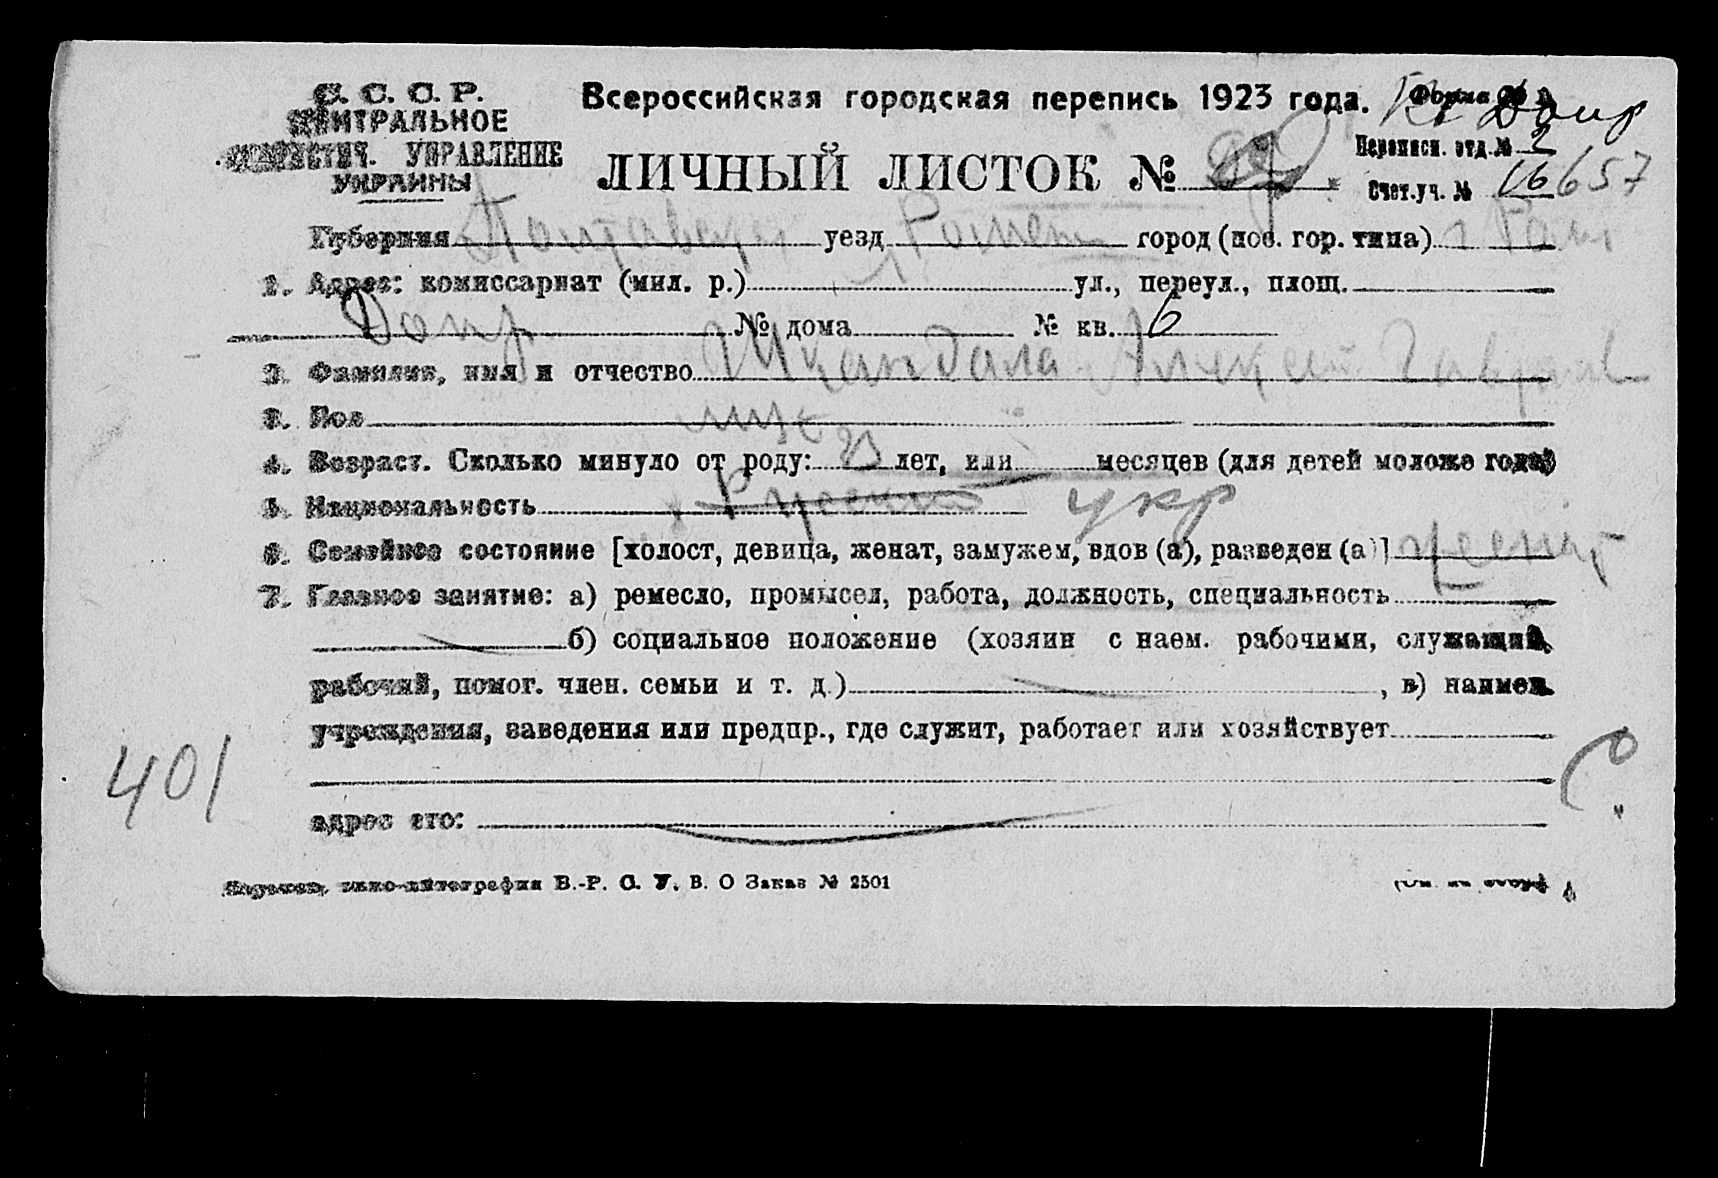 С. С. С. Р.
ЦЕНТРАЛЬНОЕ
СТАТИСТИЧ. УПРАВЛЕНИЕ
УКРАИНЫ
Всероссийская городская перепись 1923 года. Форма № Допр
ЛИЧНЫЙ ЛИСТОК №
Переписн. отд. № 2
Счет. уч. № 16 657
Губерния Полтавская уезд Ромен город (пос. гор. типа) г Ромн
1. Адрес: комиссариат (мил. р.) ул., переул., площ.
Допр № дома № кв. 6
2. Фамилия, имя и отчество Шкандала Алексей Гаврилов
3. Пол муж
4. Возраст. Сколько минуло от роду: 23 лет, или месяцев (для детей моложе года)
5. Национальность Русский укр
6. Семейное состояние [холост, девица, женат, замужем, вдов (а), разведен (а)]
7. Главное занятие: а) ремесло, промысел, работа, должность, специальность
б) социальное положение (хозяин с наем. рабочими, служащий,
рабочий, помог. член. семьи и т. д.) , в) наимен.
учреждения, заведения или предпр., где служит, работает или хозяйствует
401
адрес его:
Харьков, цинко-литография В.-Р. С. У. В. О Заказ № 2501